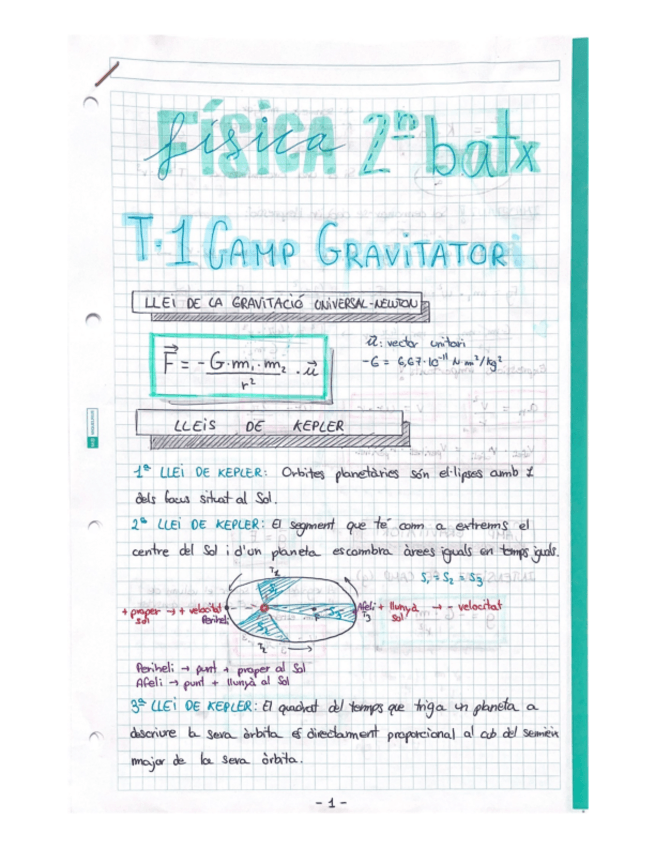 física 2n batx
T.1 CAMP GRAVITATORI
LLEI DE LA GRAVITACIÓ UNIVERSAL-NEWTON
F = - G·m₁·m₂ / r² · u
u: vector unitari
-G = 6,67·10⁻¹¹ N·m²/kg²
LLEIS DE KEPLER
1ª LLEI DE KEPLER: Orbites planetàries són el·lipses amb 1
dels focus situat al Sol.
2ª LLEI DE KEPLER: El segment que té com a extrems el
centre del Sol i d'un planeta escombra àrees iguals en temps iguals.
S₁ = S₂ = S₃
+ proper sol → + velocitat
Periheli
S₁
S₂
S₃
Afeli + llunyà sol → - velocitat
Periheli → punt + proper al Sol
Afeli → punt + llunyà al Sol
3ª LLEI DE KEPLER: El quadrat del temps que triga un planeta a
descriure la seva òrbita és directament proporcional al cub del semieix
major de la seva òrbita.
- 1 -